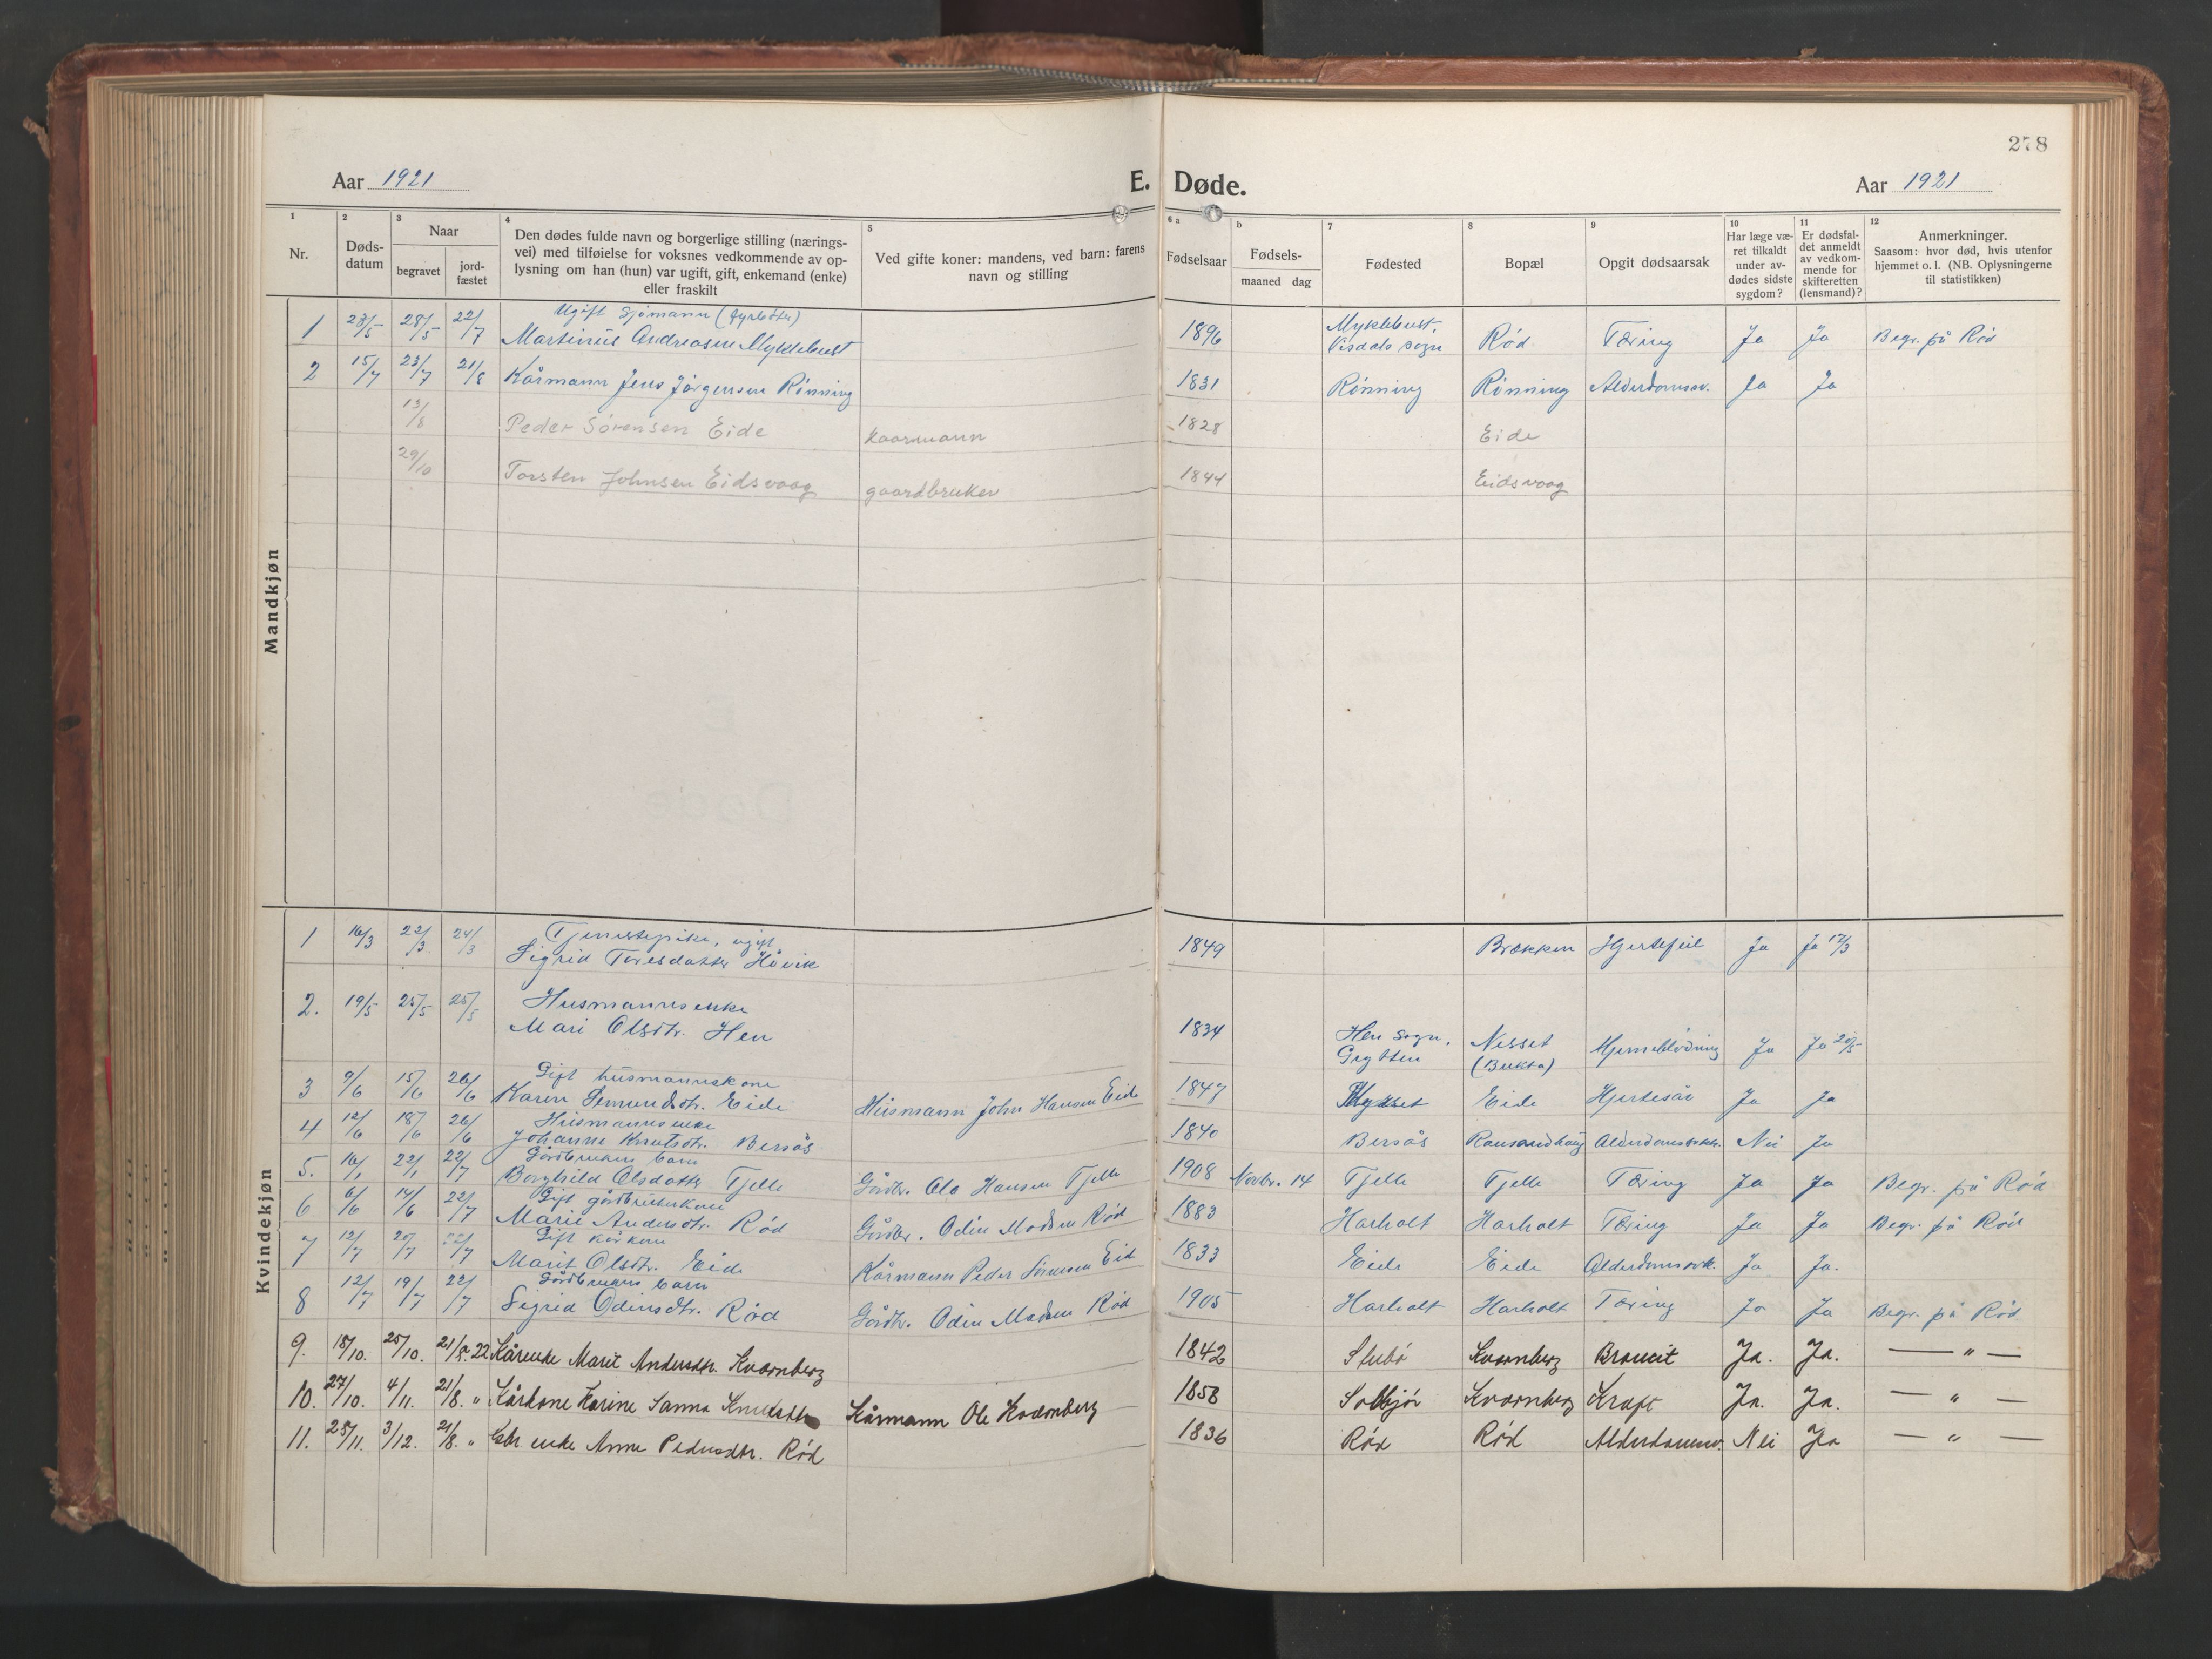 278
Aar 1921
E. Døde.
Aar 1921
1 2 3 4 5 6 a b 7 8 9 10 11 12
Nr.
Døds-
datum
Naar
begravet
jord-
fæstet
Den dødes fulde navn og borgerlige stilling (nærings-
vei) med tilføielse for voksnes vedkommende av op-
lysning om han (hun) var ugift, gift, enkemand (enke)
eller fraskilt
Ved gifte koner: mandens, ved barn: farens
navn og stilling
Fødselsaar
Fødsels-
maaned dag
Fødested
Bopæl
Opgit dødsaarsak
Har læge væ-
ret tilkaldt
under av-
dødes sidste
sygdom?
Er dødsfal-
det anmeldt
av vedkom-
mende for
skifteretten
(lensmand)?
Anmerkninger.
Saasom: hvor død, hvis utenfor
hjemmet o. l. (NB. Oplysningerne
til statistikken)
Mandkjøn
Ugift Sjømann (fyrbøter)
1 23/5 28/5 22/7 Martinus Andreasen Myklebust 1896 Myklebust, Visdals sogn Rød Tæring Ja Ja Begr. på Rød
2 15/7 23/7 21/8 Kårmann Jens Jørgensen Rønning 1831 Rønning Rønning Alderdomsav. Ja Ja
13/8 Peder Sørensen Eide kaarmann 1828 Eide
29/10 Torsten Johnsen Eidsvaag gaardbruker 1844 Eidsvaag
Kvindekjøn
Tjenestepike, ugift
1 16/3 22/3 24/3 Sigrid Toresdatter Håvik 1849 Brækken Hjertefeil Ja Ja 17/3
Husmannsenke
2. 19/5 25/5 25/5 Mari Olsdtr. Hen 1834 Hen sogn, Grytten Nesset (Bukta) Hjerneblødning Ja Ja 20/5
Gift husmannskone
3 9/6 15/6 26/6 Karen Eide Husmann John Hansen Eide 1847 Eide Hjertesår Ja Ja
Husmannsenke
4 12/6 18/6 26/6 Johanne Knutsdtr. Bersås 1840 Bersås Ransandhaug Nei Ja
Gårdbrukers barn
5. 16/1 22/1 22/7 Borghild Olsdatter Tjelle Gårdbr. Ole Hansen Tjelle 1908 Novbr. 14 Tjelle Tjelle Tæring Ja Ja Begr. på Rød
Gift gårdbrukerkone
6 6/6 14/6 22/7 Marie Andersdtr. Rød Gårdbr. Odin Madsen Rød 1883 Harholt Harholt Tæring Ja Ja Begr. på Rød
Gift kårkone
7 12/7 20/7 22/7 Marit Olsdtr. Eide Kårmann Peder Sørensen Eide 1833 Eide Eide Alderdomssvk. Ja Ja.
Gårdbrukers barn
8 12/7 19/7 22/7 Sigrid Odinsdtr. Rød Gårdbr. Odin Madsen Rød 1905 Harholt Harholt Tæring Ja Ja Begr. på Rød
9. 18/10. 25/10. 21/8. 22 Kårenke Marit Andersdtr. Kvernberg 1842 Stubø Kvernberg Broncit Ja. Ja. — " —
10. 27/10. 4/11. 21/8. " Kårkone Karine Sanna Knutsdtr. Kårmann Ole Kvernberg 1858 Solbjør Kvernberg Kræft Ja. Ja. " —
11. 25/11. 3/12. 21/8. " Gbr. enke Anne Pedersdtr. Rød 1836 Rød Rød Alderdomssv. Nei Ja — " —